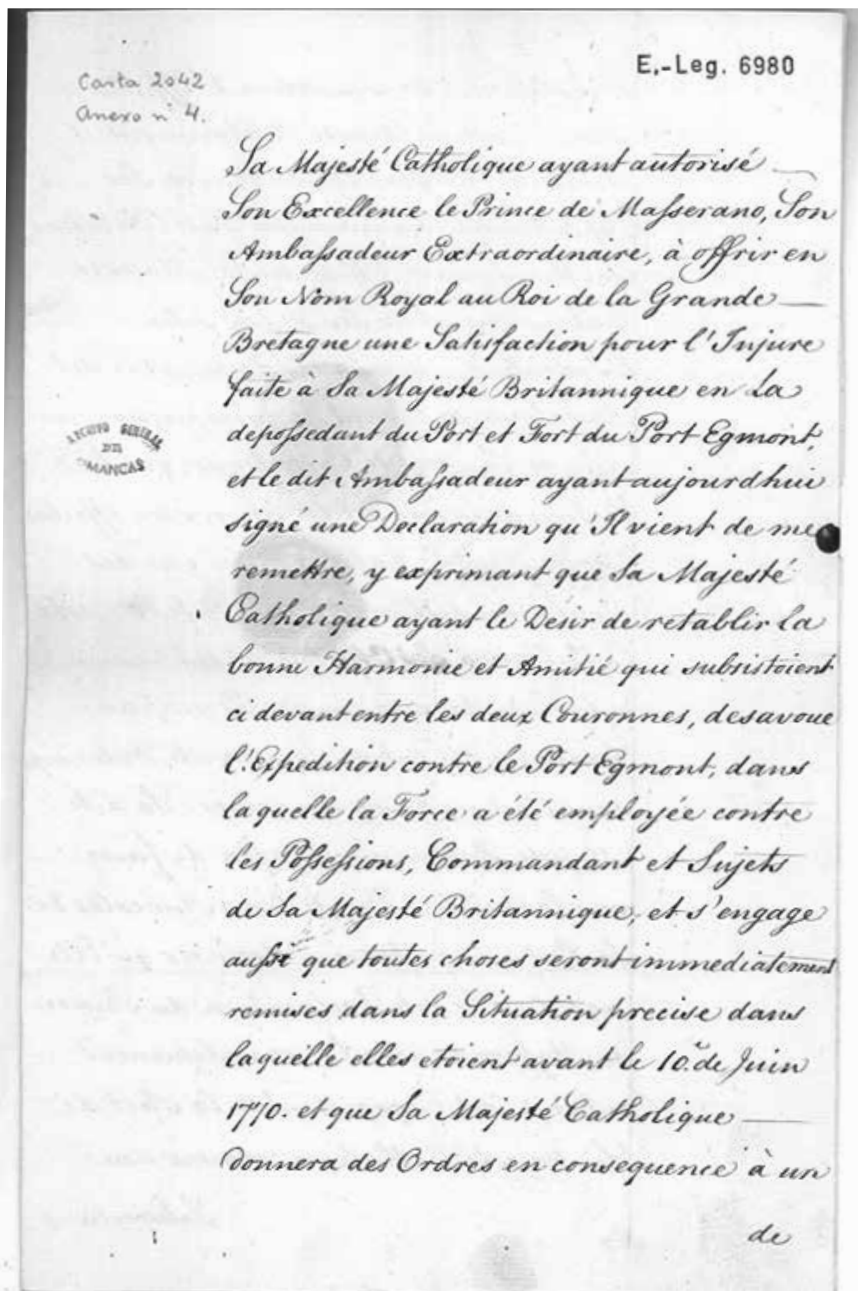 E.-Leg. 6980
Carta 2042
Anexo nº 4.
Sa Majesté Catholique ayant autorisé
Son Excellence le Prince de Masserano, Son
Ambassadeur Extraordinaire, à offrir en
Son Nom Royal au Roi de la Grande
Bretagne une Satisfaction pour l'Injure
faite a Sa Majesté Britannique en La
depossedant du Port et Fort du Port Egmont,
et le dit Ambassadeur ayant aujourdhui
signé une Declaration qu'Il vient de me
remettre, y exprimant que Sa Majesté
Catholique ayant le Desir de retablir la
bonne Harmonie et Amitié qui subsistoient
ci devant entre les deux Couronnes, desavoue
l'Expedition contre le Port Egmont, dans
laquelle la Force a été employée contre
les Possessions, Commandant et Sujets
de Sa Majesté Britannique, et s'engage
aussi que toutes choses seront immediatement
remises dans la Situation precise dans
laquelle elles etoient avant le 10.e de Juin
1770. et que Sa Majesté Catholique
donnera des Ordres en consequence à un
de
ARCHIVO GENERAL
DE
SIMANCAS